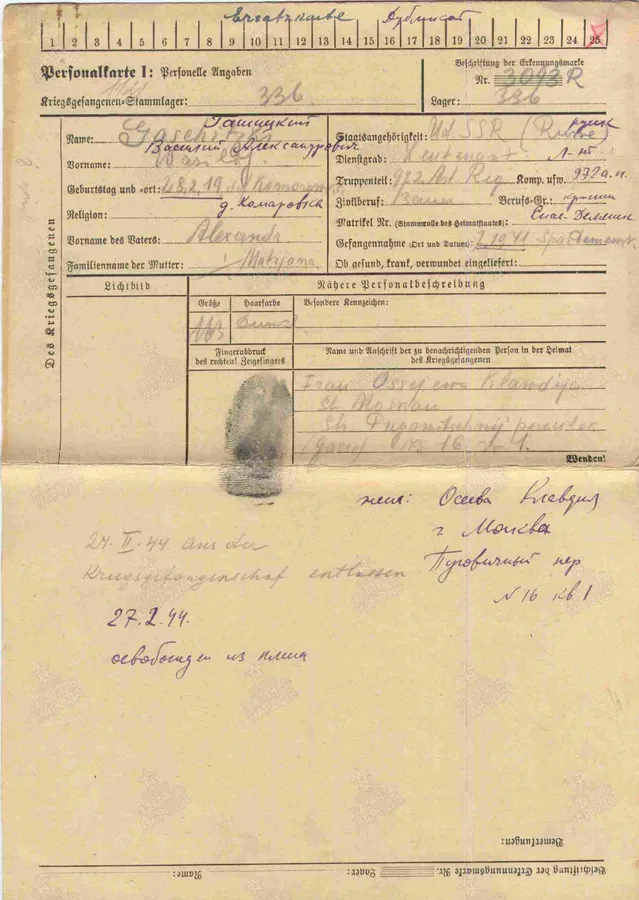 Ersatzkarte Дубликат
1 2 3 4 5 6 7 8 9 10 11 12 13 14 15 16 17 18 19 20 21 22 23 24 25
Personalkarte I: Personelle Angaben
Beschriftung der Erkennungsmarke
Nr. 3093 R
Kriegsgefangenen-Stammlager: 336
Lager: 336
Des Kriegsgefangenen
Гашицкий
Name:
Василий Александрович
Vorname: Wasilij
Geburtstag und -ort: 28.2.19
д. Комаровка
Religion:
Vorname des Vaters: Alexandr
Familienname der Mutter: Matrjona
Staatsangehörigkeit: Ud SSR (Russe) русск
Dienstgrad: Leutenant Л-т
Truppenteil: 972 Art Reg Komp. usw. 972 а.п.
Zivilberuf: Bauer Berufs-Gr.:
Matrikel Nr. (Stammrolle des Heimatstaates): Спас-Деменск
Gefangennahme (Ort und Datum): 1941
Ob gesund, krank, verwundet eingeliefert:
Lichtbild
Nähere Personalbeschreibung
Größe Haarfarbe Besondere Kennzeichen:
163
Fingerabdruck
des rechten! Zeigefingers
Name und Anschrift der zu benachrichtigenden Person in der Heimat
des Kriegsgefangenen
Frau Ossejewa Klawdija
St. Moskau
Str.
(Gasse) No 16
Wenden!
жена: Осеева Клавдия
г Москва
Пуговичный пер
N 16 кв 1
27. II. 44. aus der
Kriegsgefangenschaf entlassen
27.2.44.
освобожден из плена
Bemerkungen:
Name: Lager: Beschriftung der Erkennungsmarke Nr.